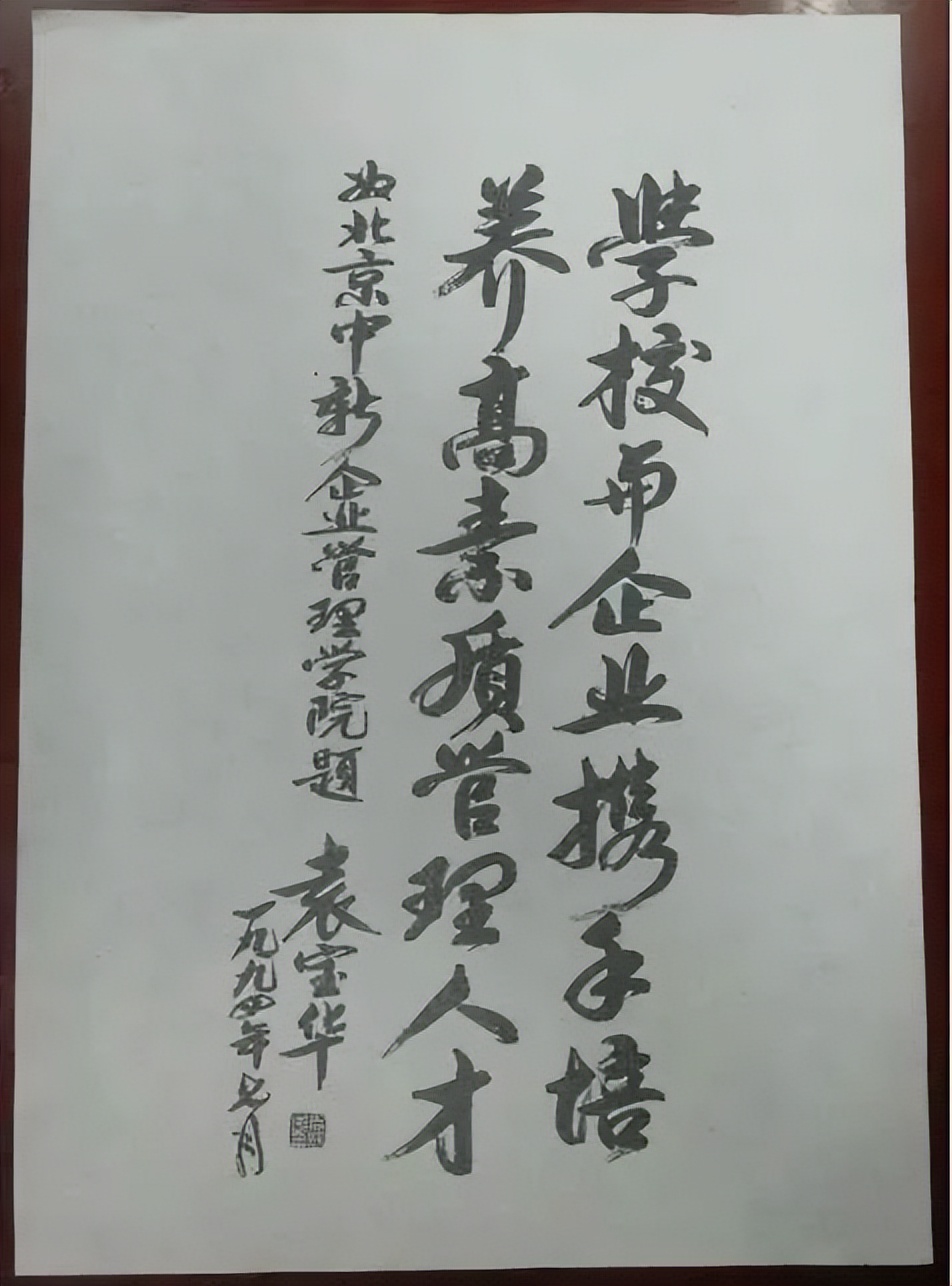 學校与企业携手培
养高素质管理人才
为北京中新企业管理学院题
袁宝华
一九九四年七月